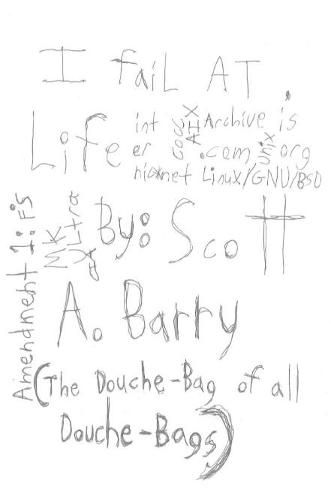 I faiL AT
Life
int
er
nicnet
AIX
Archive.is
.com
unix
org
Linux/GNU/BSD
By: Scott
MK
ULtra
Amendment 1:
A. Barry
(The Douche-Bag of all
Douche-Bags)